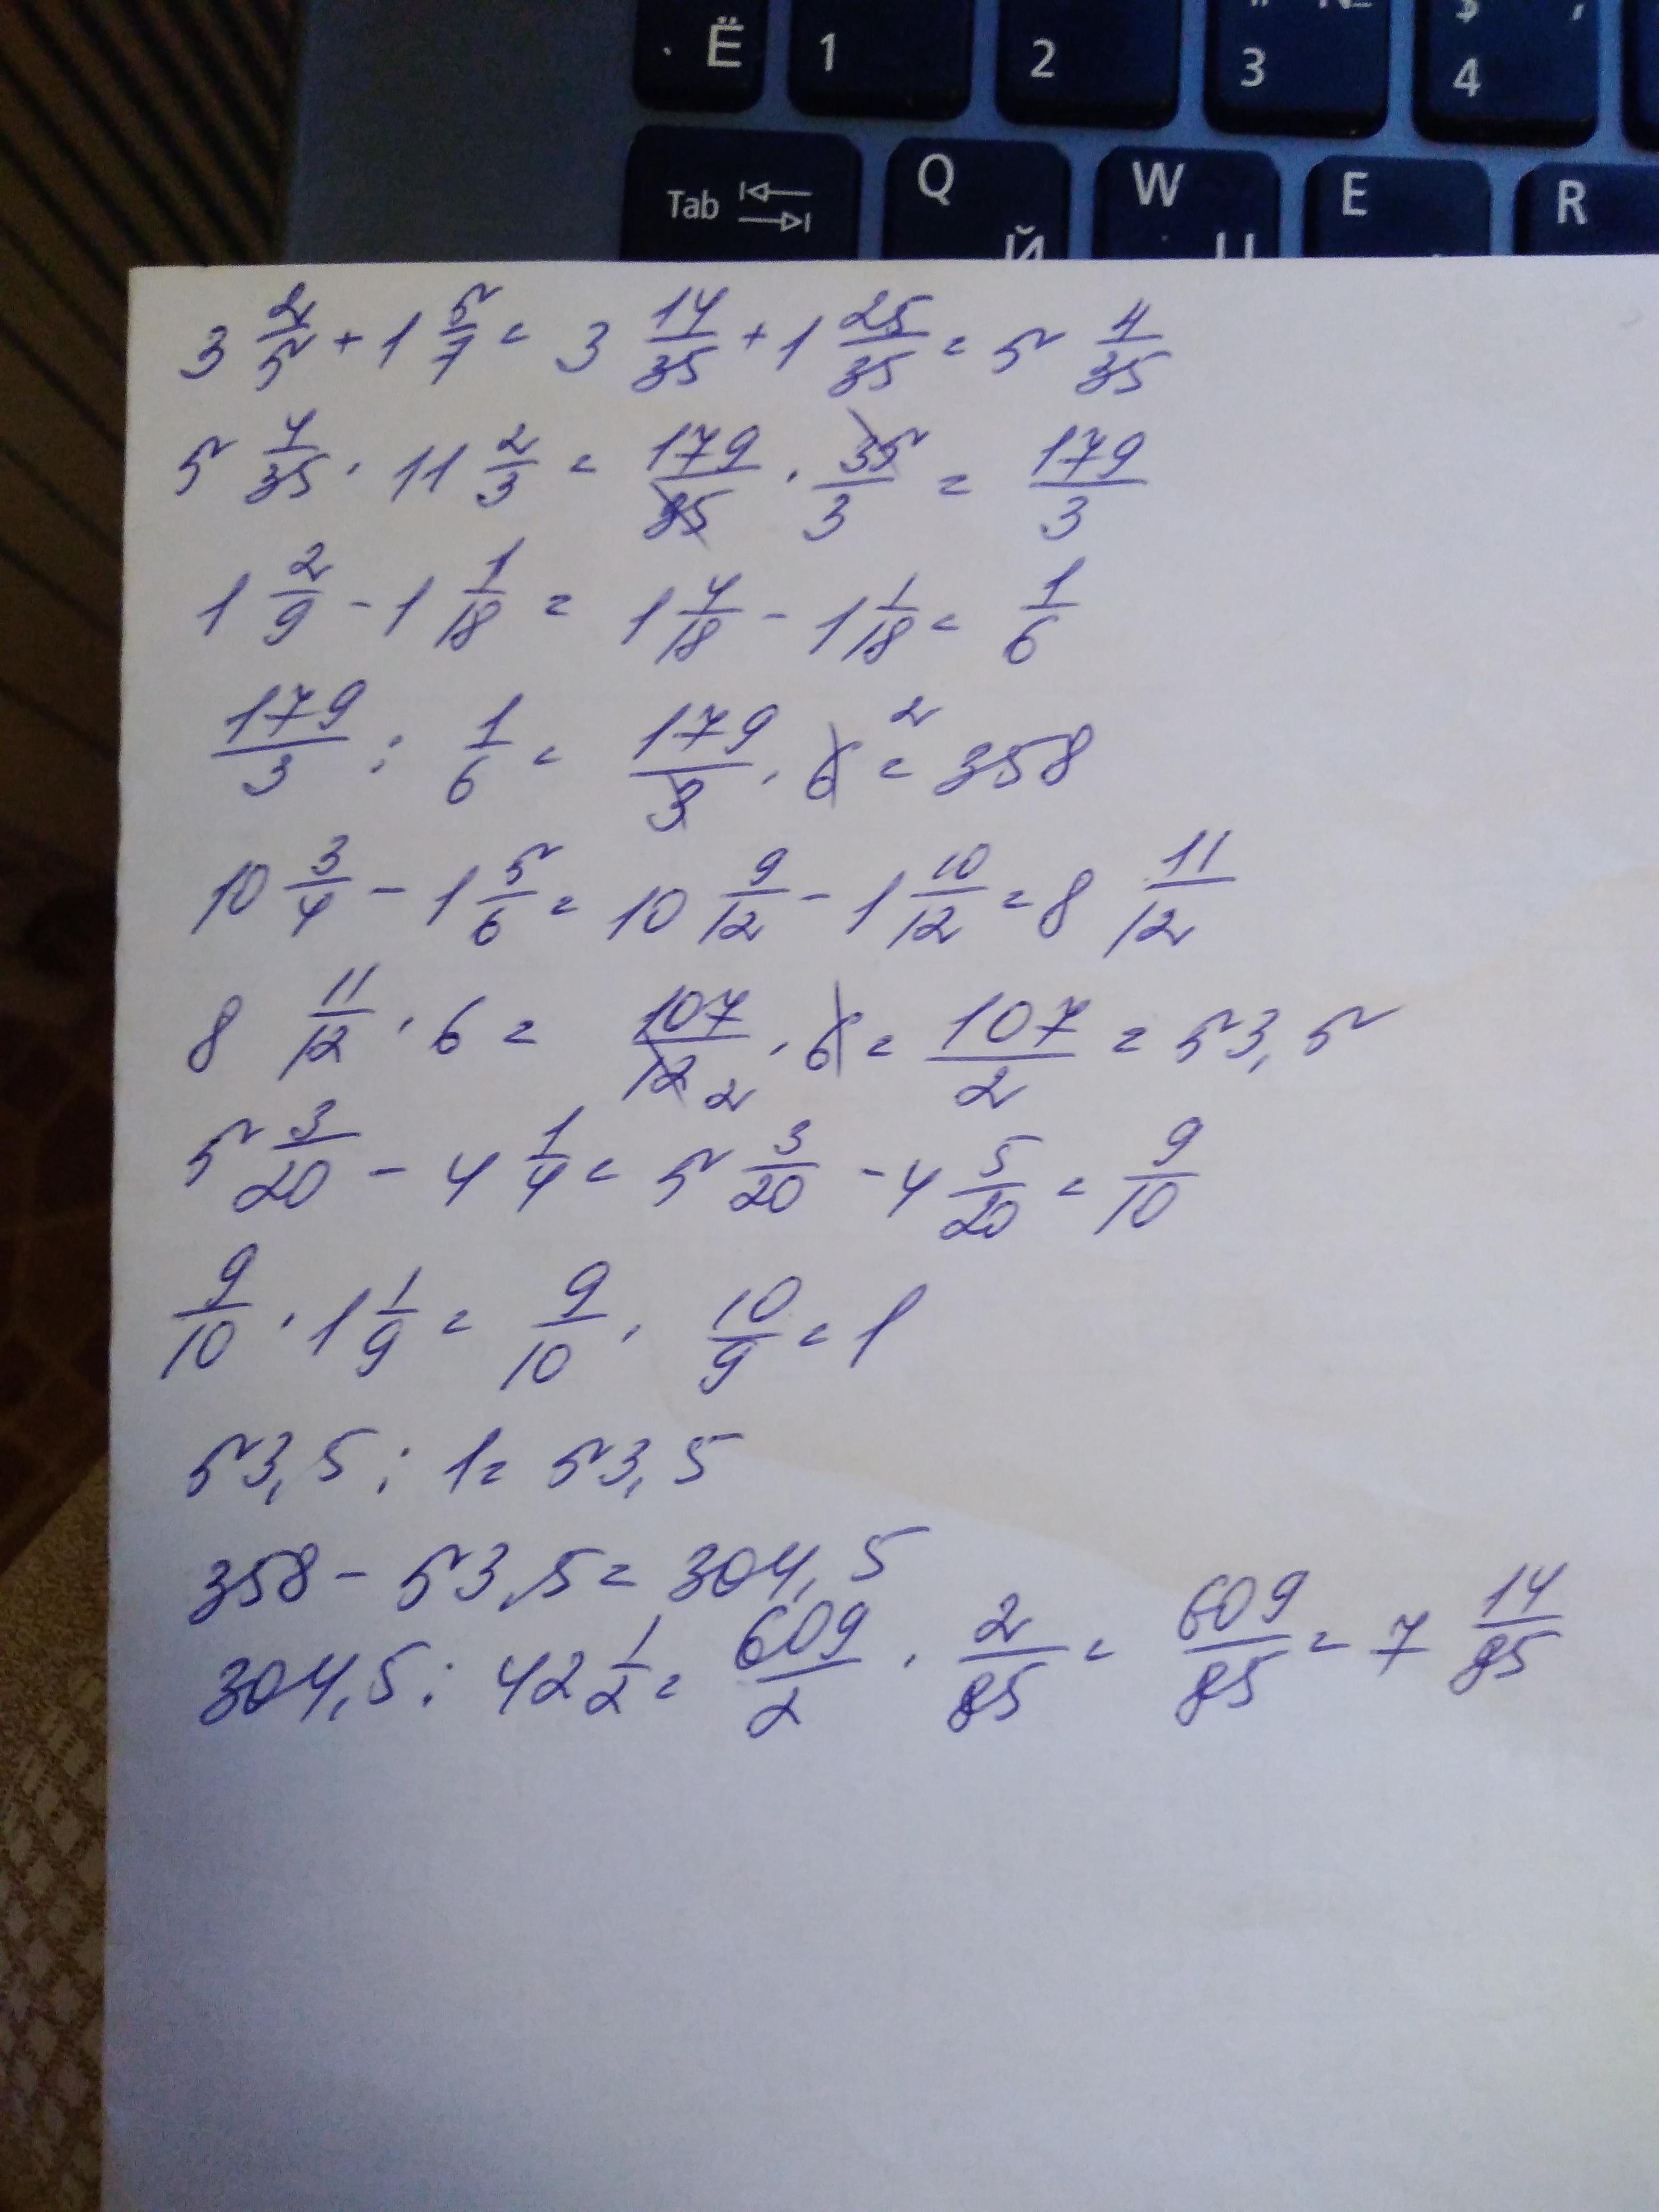 . Ё 1 2 3 $ 4
Tab Q Й W E R
3 2/5 + 1 5/7 = 3 14/35 + 1 25/35 = 5 4/35
5 4/35 · 11 2/3 = 179/35 · 35/3 = 179/3
1 2/9 - 1 1/18 = 1 4/18 - 1 1/18 = 1/6
179/3 : 1/6 = 179/3 · 6 2 = 358
10 3/4 - 1 5/6 = 10 9/12 - 1 10/12 = 8 11/12
8 11/12 · 6 = 107/12 2 · 6 = 107/2 = 53,5
5 3/20 - 4 1/4 = 5 3/20 - 4 5/20 = 9/10
9/10 · 1 1/9 = 9/10 · 10/9 = 1
53,5 : 1 = 53,5
358 - 53,5 = 304,5
304,5 : 42 1/2 = 609/2 · 2/85 = 609/85 = 7 14/85